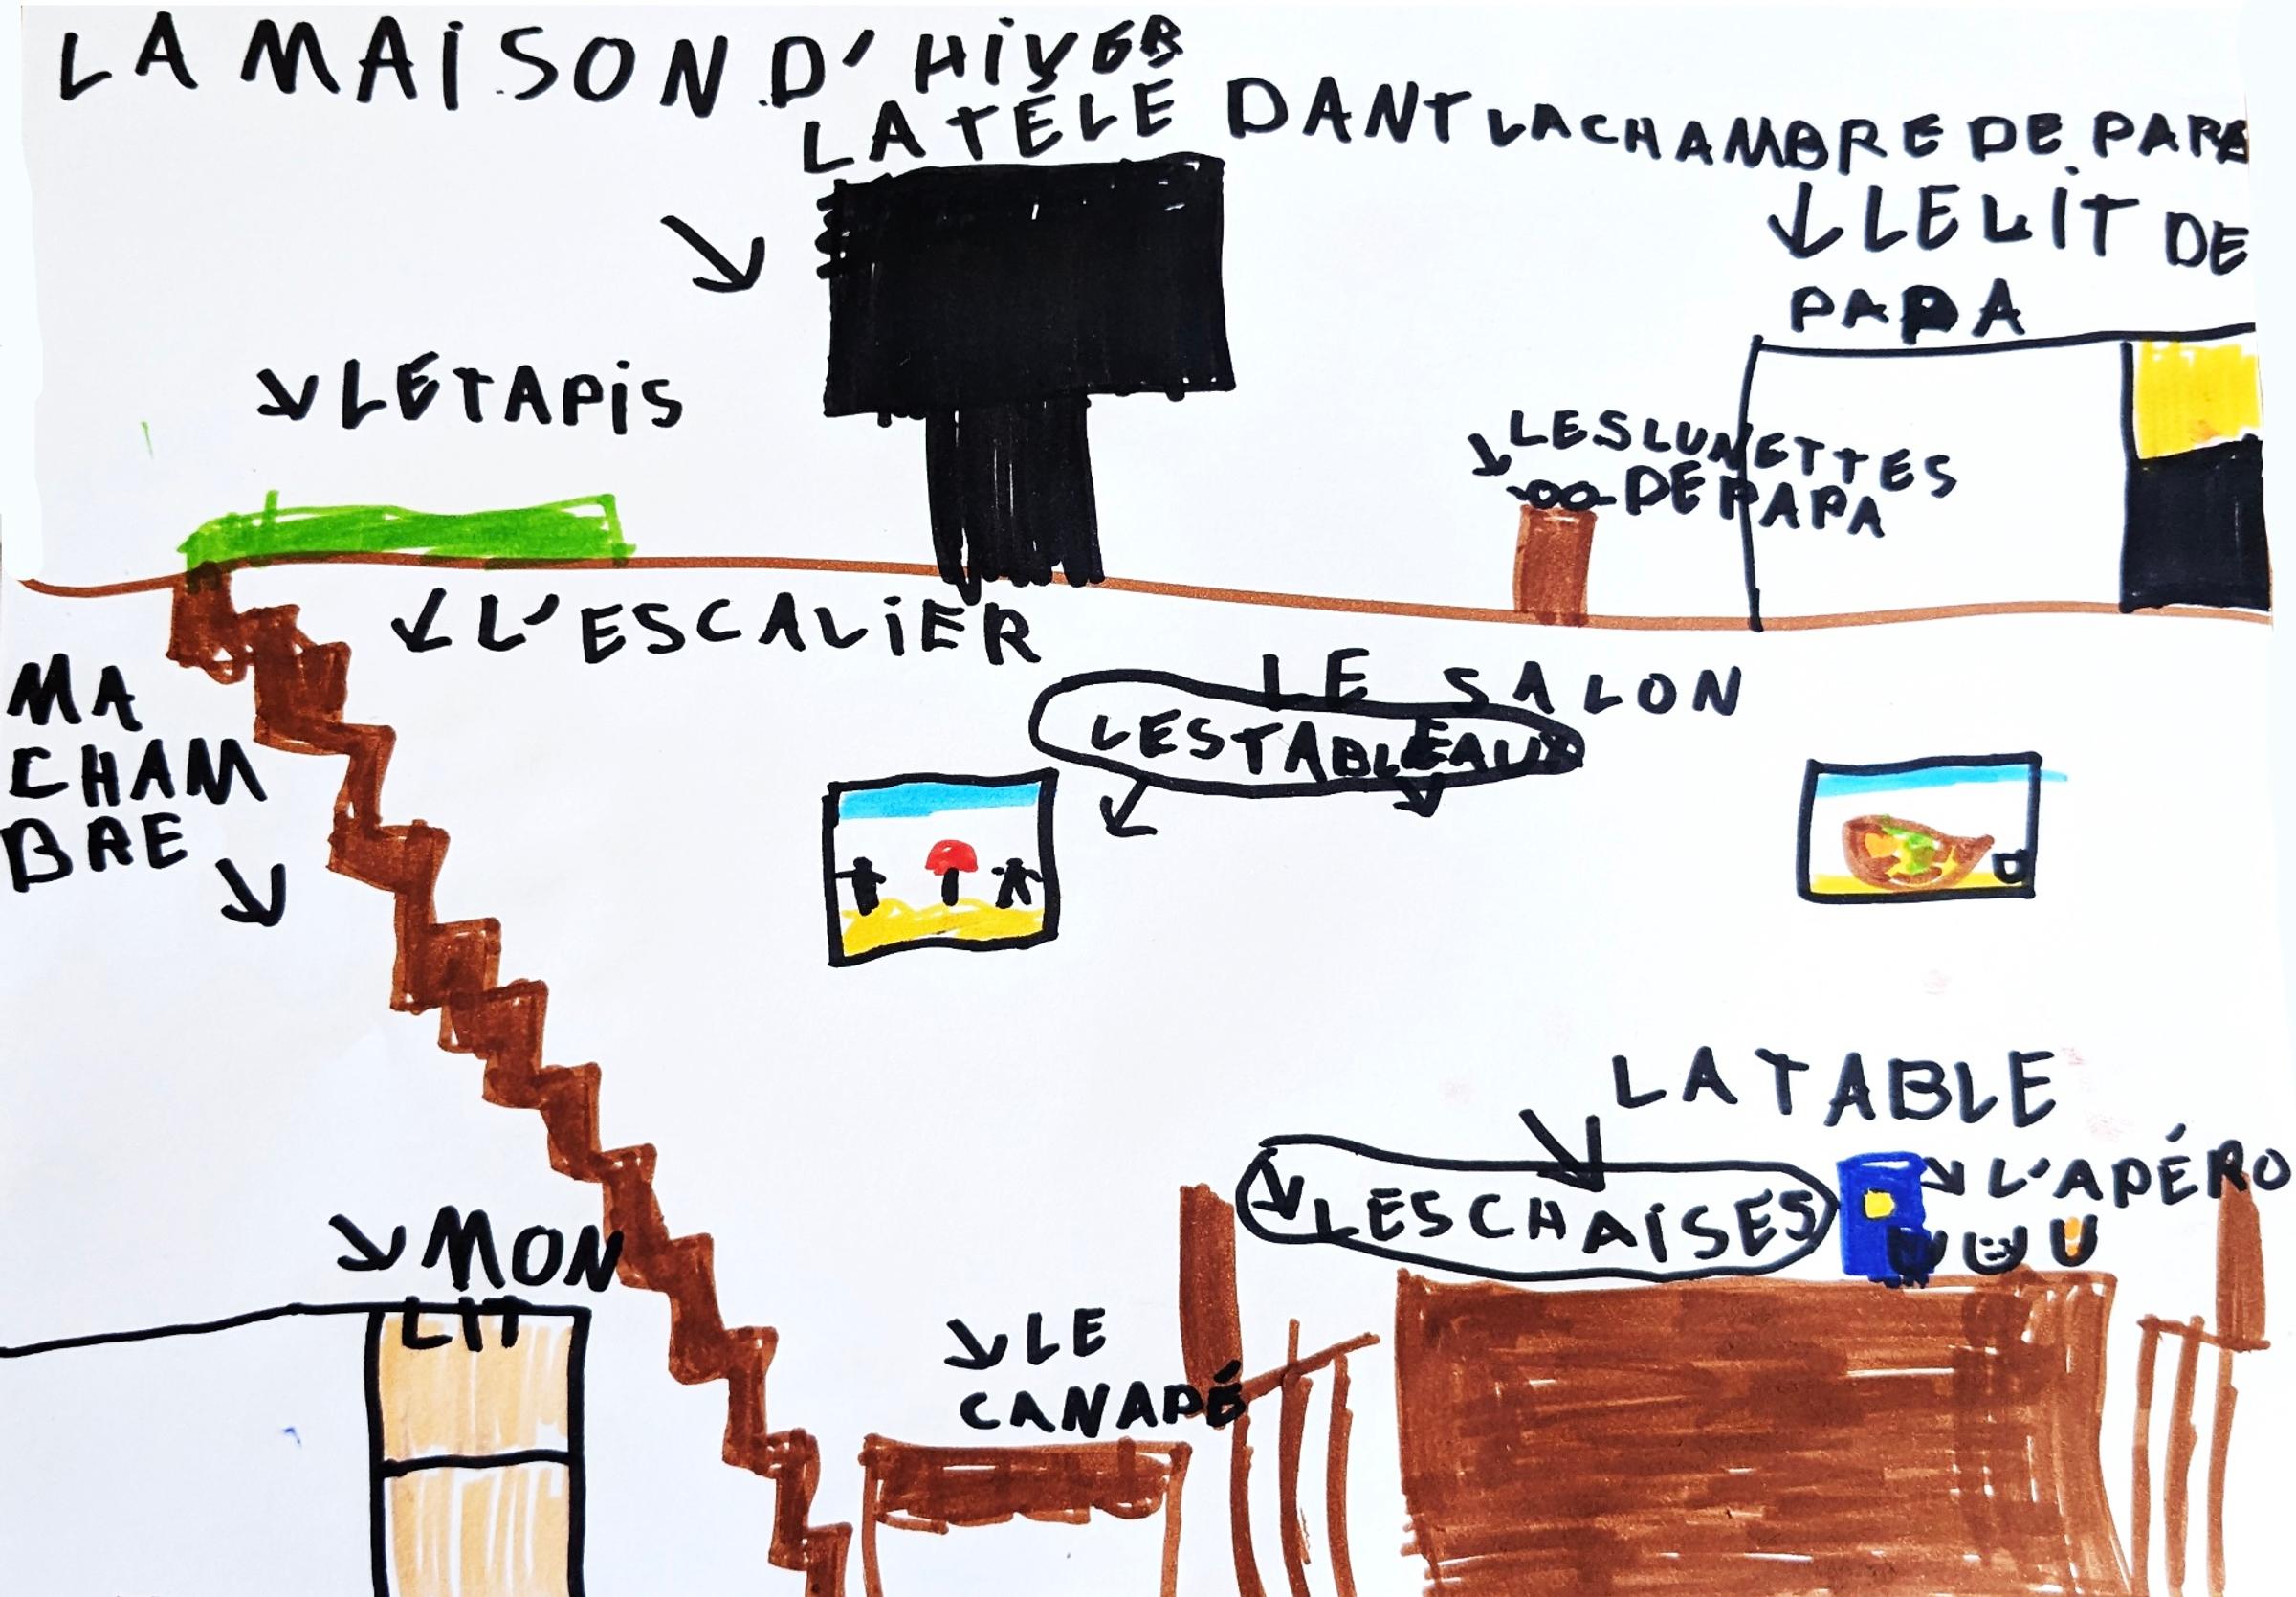 LA MAISON D'HIVER
LA TÉLÉ DANT LA CHAMBRE DE PAPA
LE LIT DE
PAPA
LE TAPIS
LES LUNETTES
DE PAPA
L'ESCALIER
MA
CHAM
BRE
LE SALON
LES TABLEAUX
LA TABLE
L'APÉRO
LES CHAISES
MON
LIT
LE
CANAPÉ